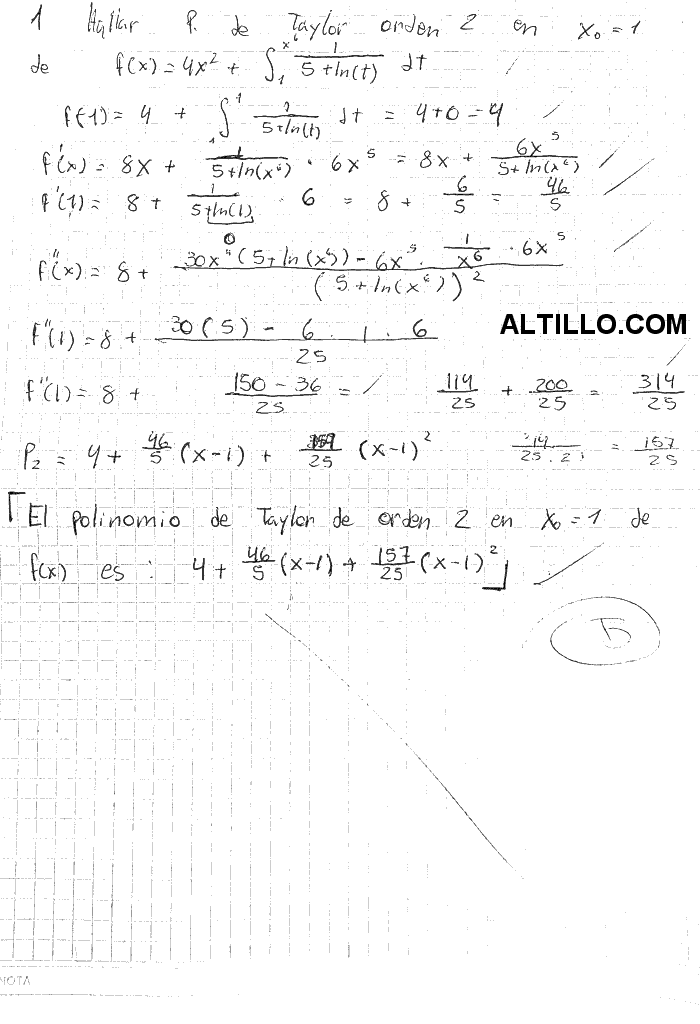 1 Hallar P. de Taylor orden 2 en x₀ = 1
de f(x) = 4x² + ∫₁^(x⁶) 1/(5+ln(t)) dt
f(1) = 4 + ∫₁¹ 1/(5+ln(t)) dt = 4+0 = 4
f'(x) = 8x + 1/(5+ln(x⁶)) · 6x⁵ = 8x + 6x⁵/(5+ln(x⁶))
f'(1) = 8 + 1/(5+ln(1)) · 6 = 8 + 6/5 = 46/5
0
f''(x) = 8 + (30x⁴(5+ln(x⁶)) - 6x⁵ · 1/x⁶ · 6x⁵)/(5+ln(x⁶))²
ALTILLO.COM
f''(1) = 8 + (30(5) - 6 · 1 · 6)/25
f''(1) = 8 + (150 - 36)/25 = 114/25 + 200/25 = 314/25
P₂ = 4 + 46/5 (x-1) + 157/25 (x-1)² 314/(25·2) = 157/25
「El polinomio de Taylor de orden 2 en x₀ = 1 de
f(x) es : 4 + 46/5 (x-1) + 157/25 (x-1)²」
5
NOTA